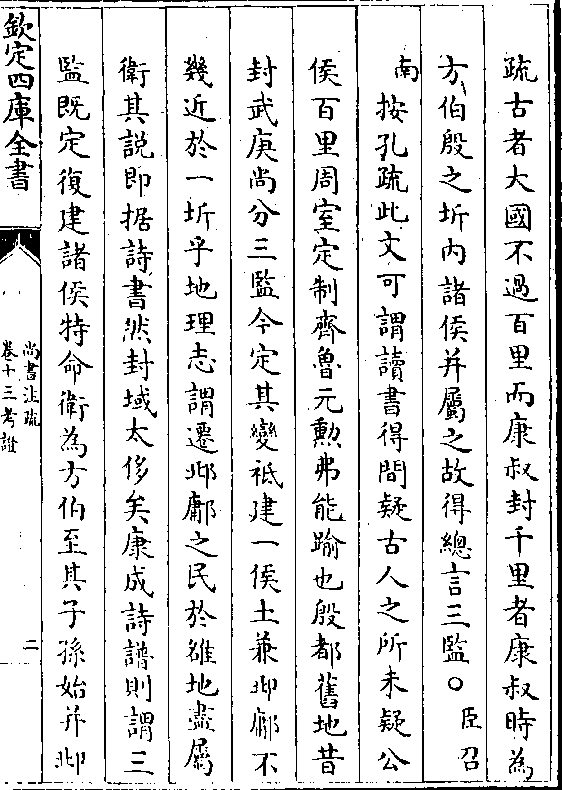 疏古者大國不過百里而康叔封千里者康叔時為
方伯殷之圻内諸侯并屬之故得總言三監○臣召
南按孔疏此文可謂讀書得間疑古人之所未疑公
侯百里周室定制齊魯元勲弗能踰也殷都舊地昔
封武庚尚分三監今定其變祗建一侯土兼邶鄘不
幾近於一圻乎地理志謂遷邶鄘之民於雒地盡屬
衛其説即据詩書然封域太侈矣康成詩譜則謂三
監既定復建諸侯特命衛為方伯至其子孫始并邶
欽定四庫全書
尚書注疏
卷十三考證
二